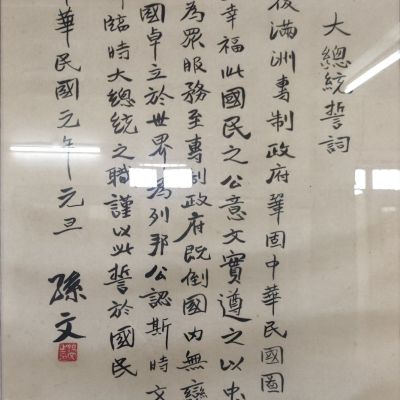 大總統誓詞
滿洲專制政府鞏固中華民國圖
幸福此國民之公意文實遵之以忠
為眾服務至專制政府既倒國內無變
國卓立於世界為列邦公認斯時文
臨時大總統之職謹以此誓於國民
華民國元年元旦
孫文